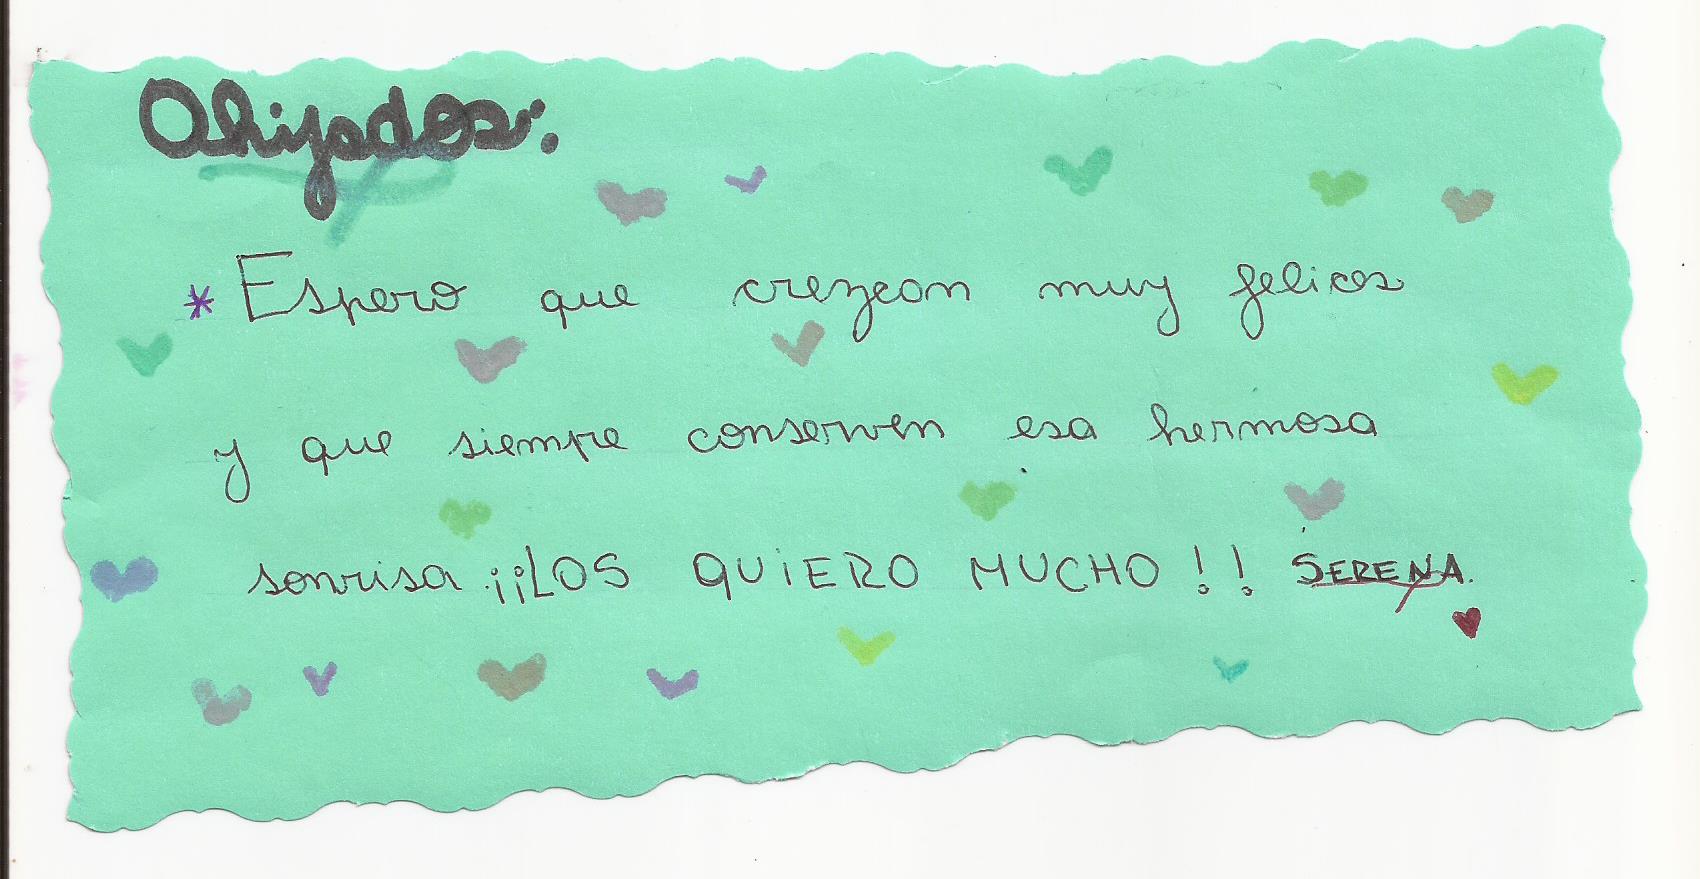 Ahijados:
* Espero que crezcan muy felices
y que siempre conserven esa hermosa
sonrisa ¡¡LOS QUIERO MUCHO!! SERENA.